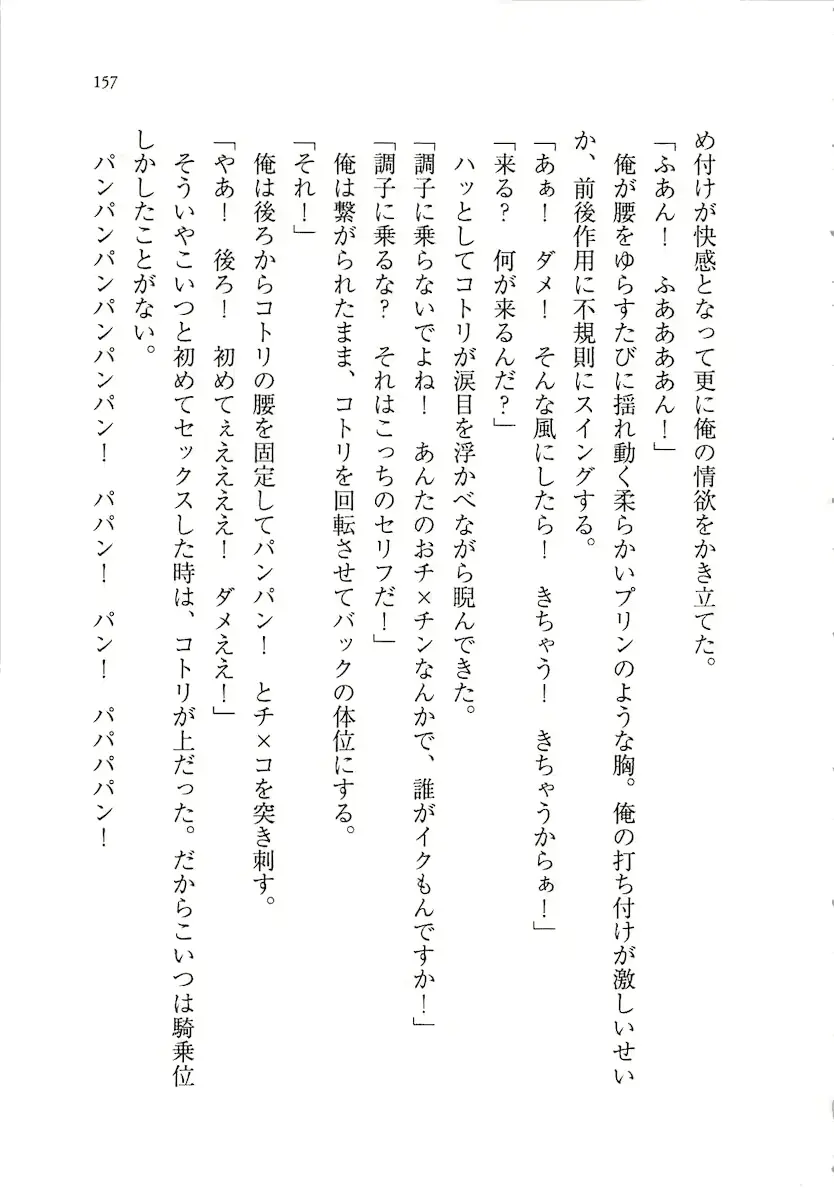 157
め付けが快感となって更に俺の情欲をかき立てた。
「ふあん！　ふああああん！」
　俺が腰をゆらすたびに揺れ動く柔らかいプリンのような胸。俺の打ち付けが激しいせい
か、前後作用に不規則にスイングする。
「あぁ！　ダメ！　そんな風にしたら！　きちゃう！　きちゃうからぁ！」
「来る？　何が来るんだ？」
　ハッとしてコトリが涙目を浮かべながら睨んできた。
「調子に乗らないでよね！　あんたのおチ×チンなんかで、誰がイクもんですか！」
「調子に乗るな？　それはこっちのセリフだ！」
　俺は繋がられたまま、コトリを回転させてバックの体位にする。
「それ！」
　俺は後ろからコトリの腰を固定してパンパン！　とチ×コを突き刺す。
「やあ！　後ろ！　初めてぇえええ！　ダメええ！」
　そういやこいつと初めてセックスした時は、コトリが上だった。だからこいつは騎乗位
しかしたことがない。
　パンパンパンパンパンパン！　パパン！　パン！　パパパパン！